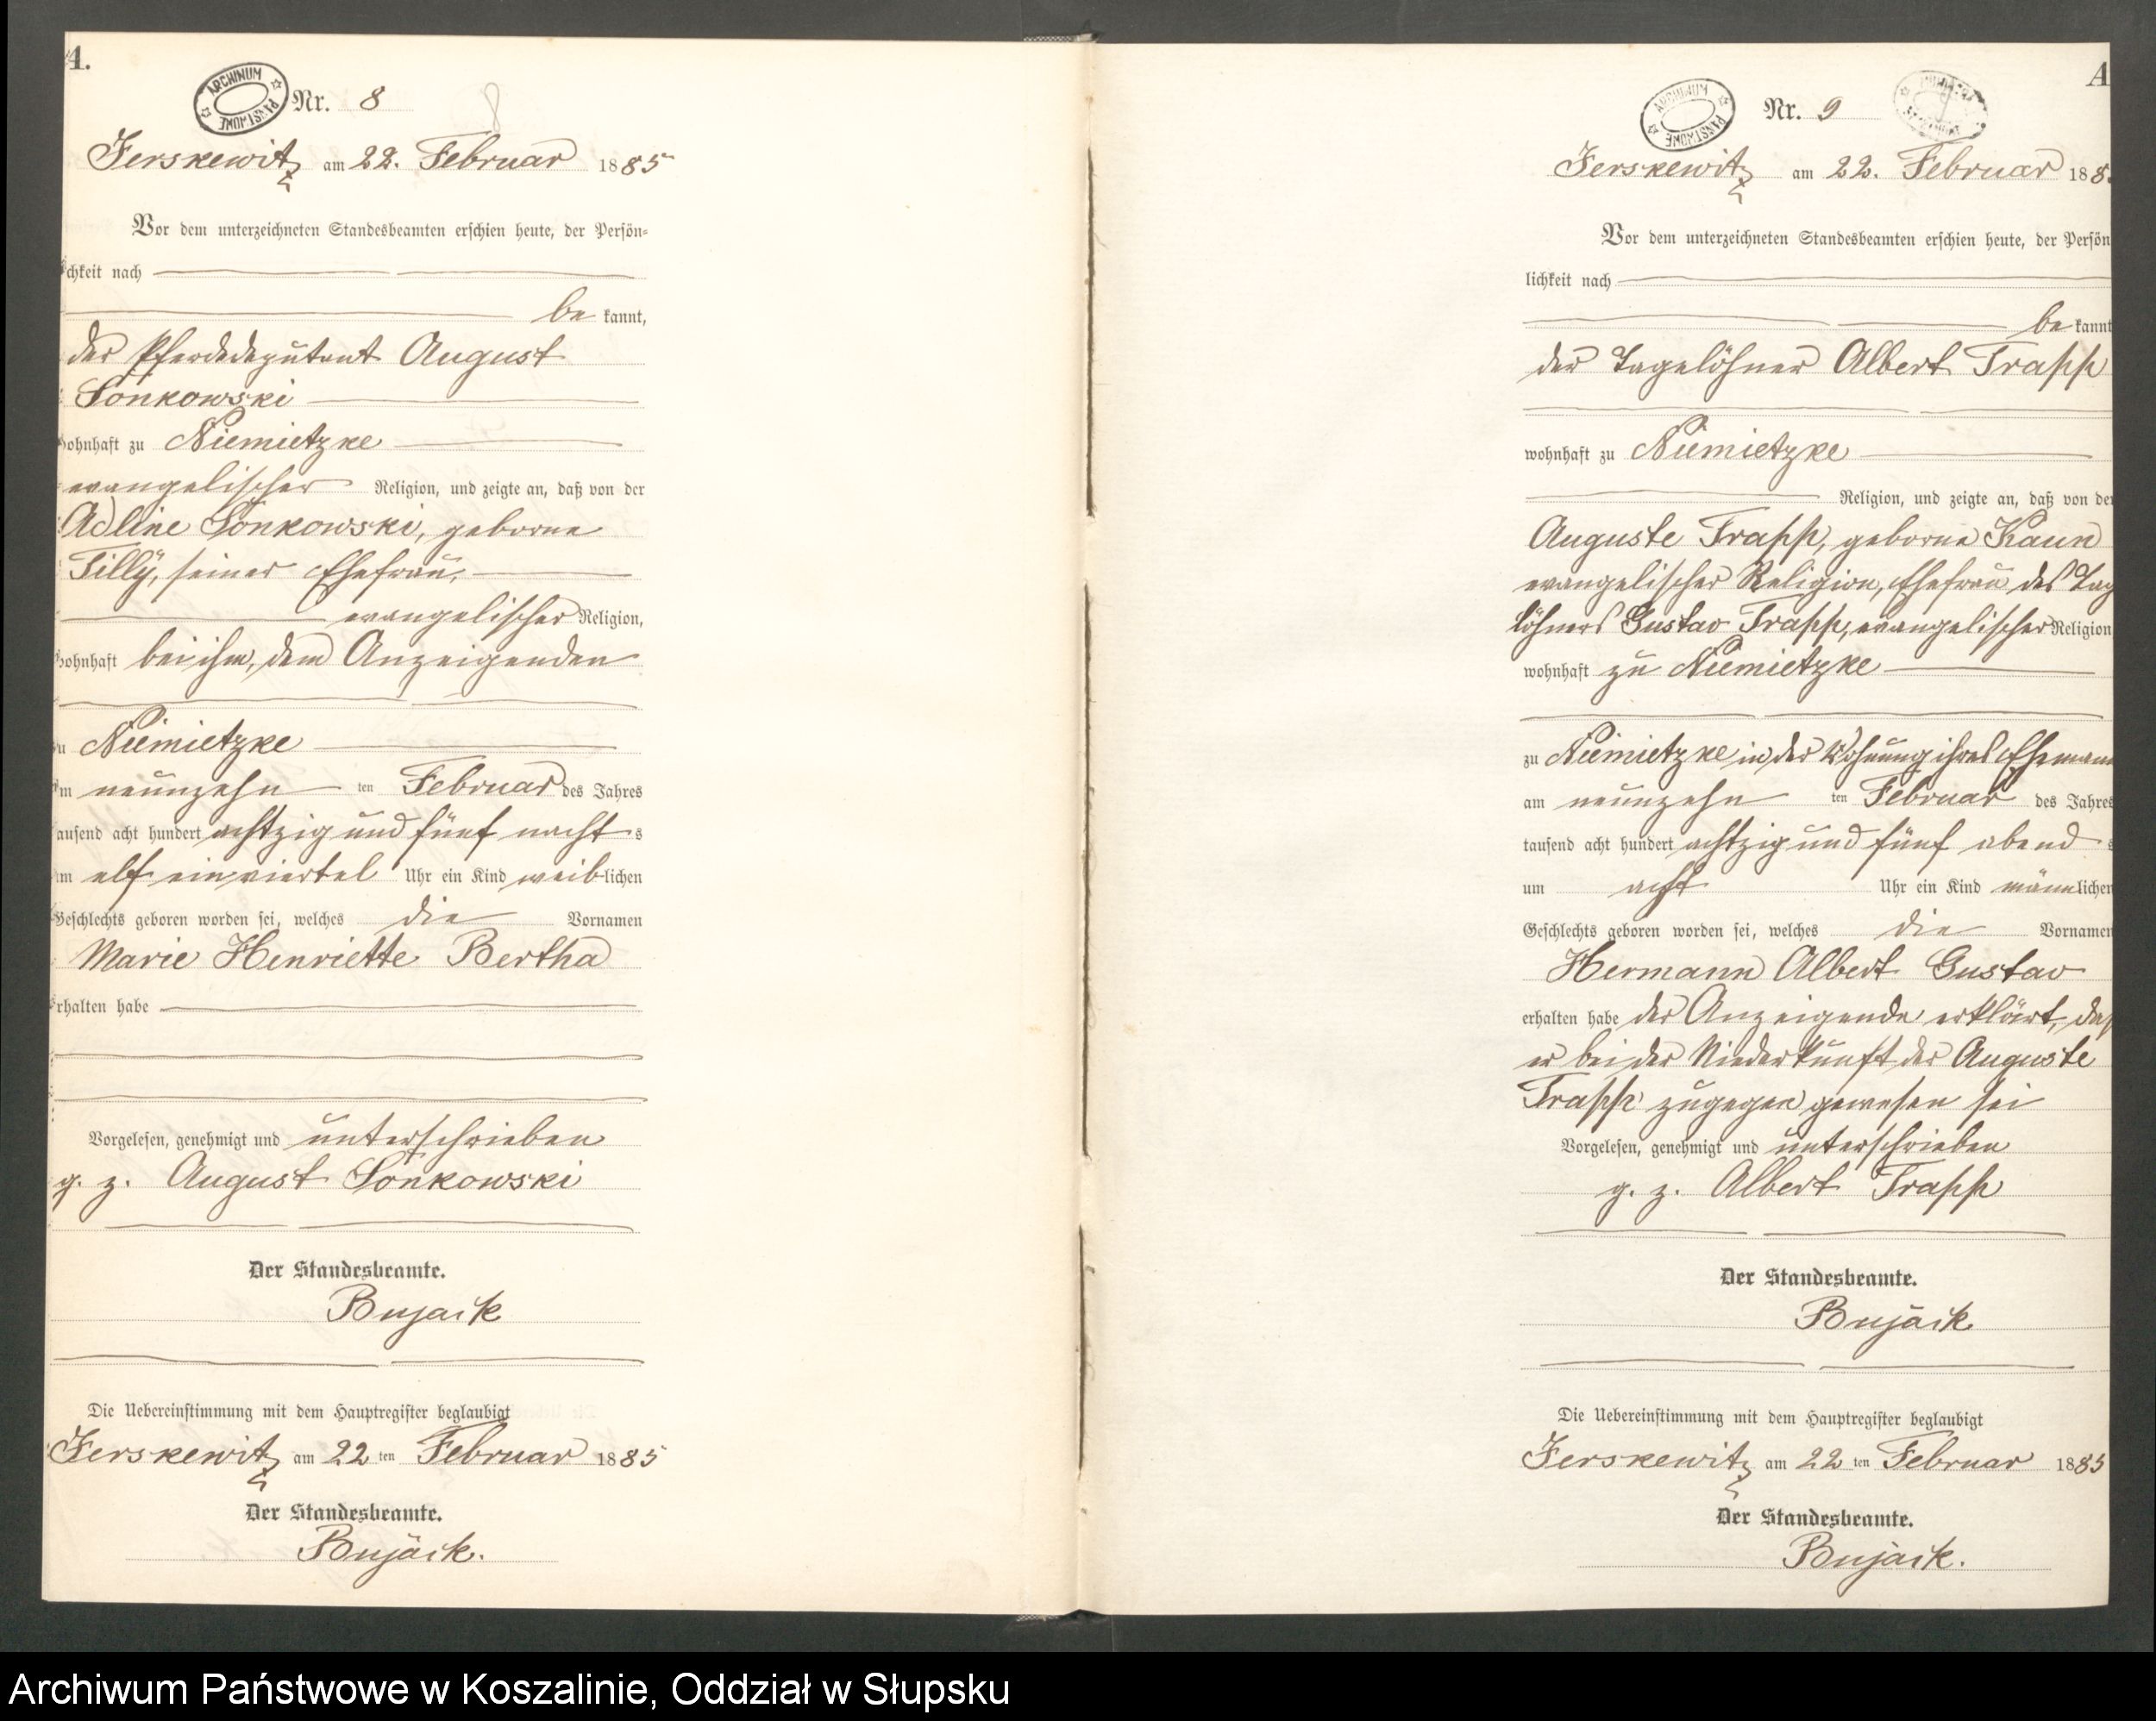 A.
ARCHIWUM PAŃSTWOWE
Nr. 8
8
Jerskewitz am 22. Februar 1885
Vor dem unterzeichneten Standesbeamten erschien heute, der Persön=
lichkeit nach
be kannt,
der Pferdedeputant August
Sonkowski
wohnhaft zu Niemietzke
evangelischer Religion, und zeigte an, daß von der
Adline Sonkowski, geborne
Tilly, seiner Ehefrau,
evangelischer Religion,
wohnhaft bei ihm, dem Anzeigenden
zu Niemietzke
am neunzehn ten Februar des Jahres
tausend acht hundert achtzig und fünf nacht s
um elf ein viertel Uhr ein Kind weiblichen
Geschlechts geboren worden sei, welches die Vornamen
Marie Henriette Bertha
erhalten habe
Vorgelesen, genehmigt und unterschrieben
g. z. August Sonkowski
Der Standesbeamte.
Bujack
Die Uebereinstimmung mit dem Hauptregister beglaubigt
Jerskewitz am 22 ten Februar 1885
Der Standesbeamte.
Bujack.
A
ARCHIWUM PAŃSTWOWE
Nr. 9
Jerskewitz am 22. Februar 188
Vor dem unterzeichneten Standesbeamten erschien heute, der Persön
lichkeit nach
be kannt
der Tagelöhner Albert Trapp
wohnhaft zu Niemietzke
Religion, und zeigte an, daß von der
Auguste Trapp, geborne Kaun
evangelischer Religion, Ehefrau des Tag
löhners Gustav Trapp, evangelischer Religion
wohnhaft zu Niemietzke
zu Niemietzke in der Wohnung ihres Ehemann
am neunzehn ten Februar des Jahres
tausend acht hundert achtzig und fünf abend s
um acht Uhr ein Kind männlichen
Geschlechts geboren worden sei, welches die Vornamen
Hermann Albert Gustav
erhalten habe der Anzeigende erklärt, daß
er bei der Niederkunft der Auguste
Trapp zugegen gewesen sei
Vorgelesen, genehmigt und unterschrieben
g. z. Albert Trapp
Der Standesbeamte.
Bujack
Die Uebereinstimmung mit dem Hauptregister beglaubigt
Jerskewitz am 22 ten Februar 1885
Der Standesbeamte.
Bujack.
Archiwum Państwowe w Koszalinie, Oddział w Słupsku